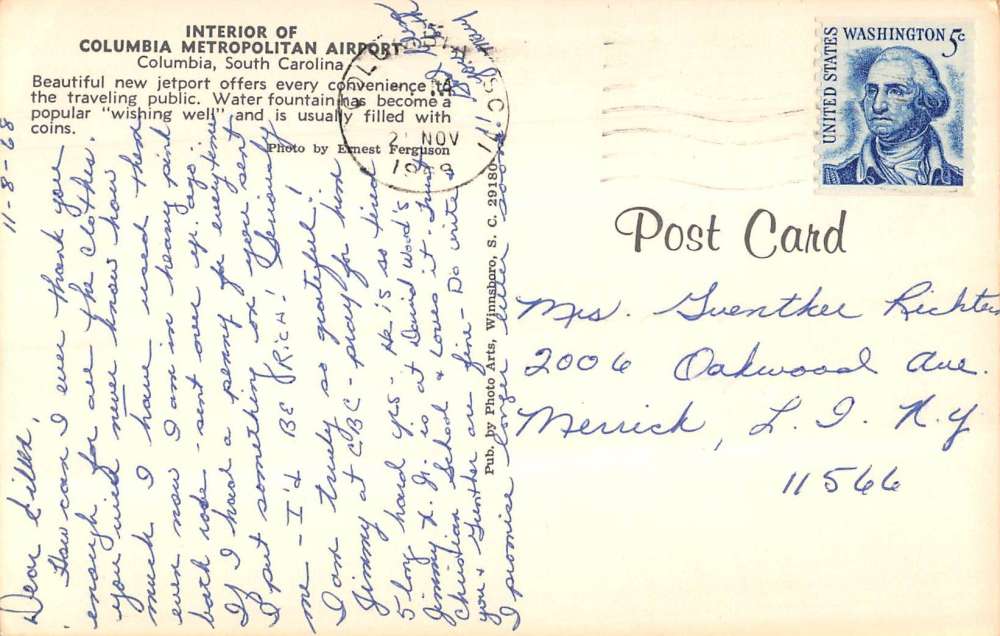 INTERIOR OF
COLUMBIA METROPOLITAN AIRPORT
Columbia, South Carolina
Beautiful new jetport offers every convenience to
the traveling public. Water fountain has become a
popular "wishing well" and is usually filled with
coins.
Photo by Ernest Ferguson
NOV
UNITED STATES
WASHINGTON 5c
Post Card
Mrs. Guenther Richter
2006 Oakwood Ave.
Merrick, L. I. N.Y
11566
Pub. by Photo Arts, Winnsboro, S. C. 29180
11-8-68
Dear Ellen,
How can I ever thank you
enough for all the clothes.
you will never know how
much I have used them
even now I am in heavy pink
bath robe - sent over yr. ago.
If I had a penny for everytime
I put something on you sent
me - I'd BE RICH! Seriously
I am truly so grateful!
Jimmy at CBC - pray for him
5 long hard yrs - He is so tired
Jimmy & Jr. is at David Wood's
Christian School & loves it - Trust
you & Gunther are fine - Do write
I promise longer letter soon.